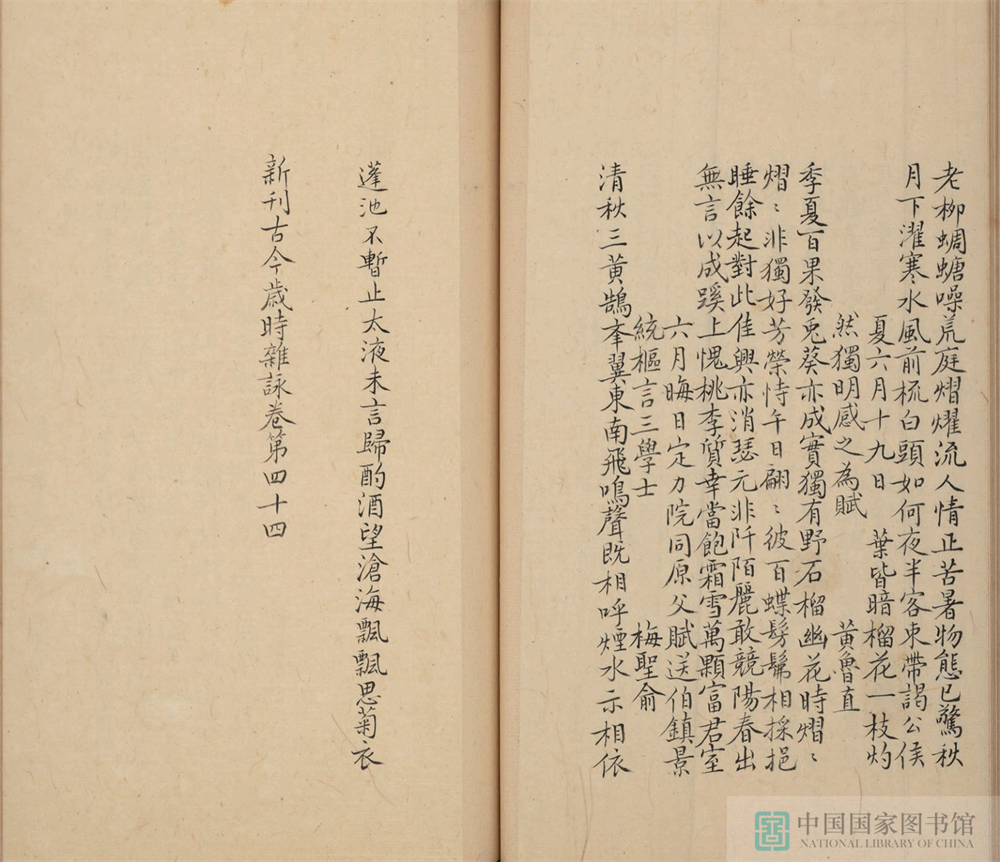 老柳蜩螗噪荒庭熠燿流人情正苦暑物態已驚秋
月下濯寒水風前梳白頭如何夜半客束帶謁公侯
夏六月十九日 葉皆暗榴花一枝灼
然獨明感之為賦 黃魯直
季夏百果發兎葵亦成實獨有野石榴幽花時熠〻
熠〻非獨好芳榮恃午日翩〻彼百蝶髣髴相採挹
睡餘起對此佳興亦消瑟元非阡陌麗敢競陽春出
無言以成蹊上愧桃李質幸當飽霜雪萬顆富君室
六月晦日定力院同原父賦送伯鎮景
統樞言三學士 梅聖俞
清秋三黃鵠夆翼東南飛鳴聲既相呼煙水示相依
蓬池不暫止太液未言歸酌酒望滄海飄飄思菊衣
新刊古今歳時雜詠卷第四十四
中国国家图书馆
NATIONAL LIBRARY OF CHINA